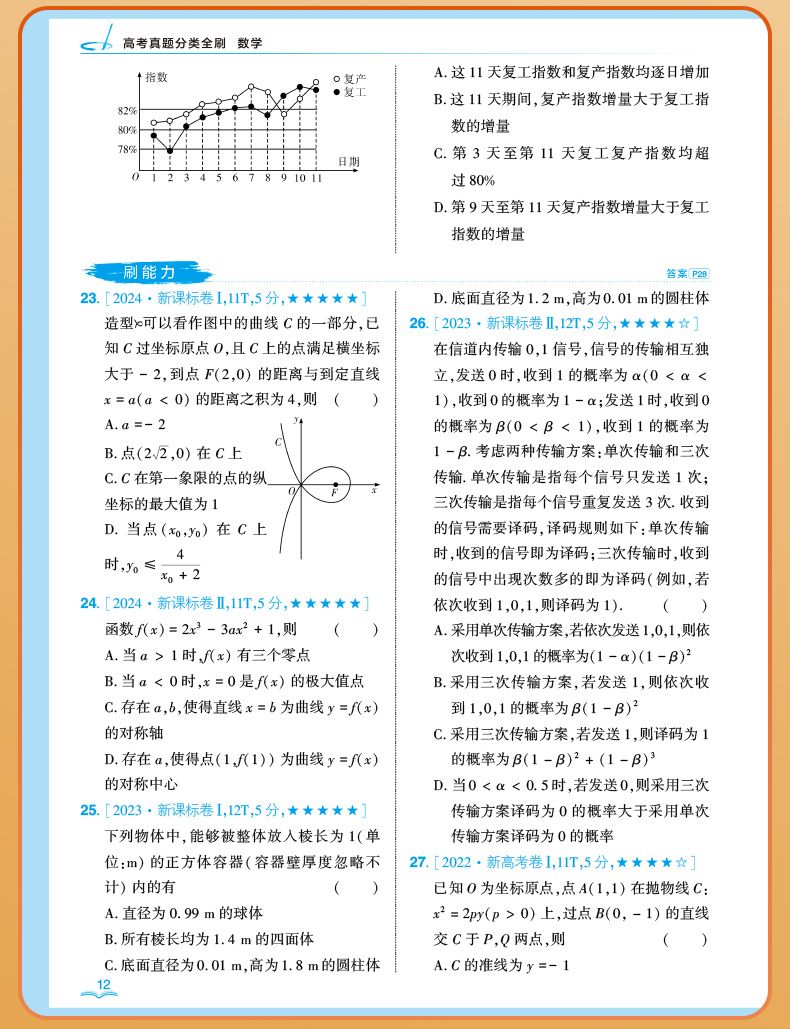 高考真题分类全刷 数学
指数
复产
复工
82%
80%
78%
日期
O 1 2 3 4 5 6 7 8 9 10 11
A. 这 11 天复工指数和复产指数均逐日增加
B. 这 11 天期间,复产指数增量大于复工指
数的增量
C. 第 3 天至第 11 天复工复产指数均超
过 80%
D. 第 9 天至第 11 天复产指数增量大于复工
指数的增量
刷能力
答案 P28
23. [2024·新课标卷Ⅰ,11T,5分,★★★★★]
造型∝可以看作图中的曲线 C 的一部分,已
知 C 过坐标原点 O,且 C 上的点满足横坐标
大于 -2,到点 F(2,0) 的距离与到定直线
x = a(a < 0) 的距离之积为 4,则 ( )
A. a = -2
B. 点(2√2,0) 在 C 上
C. C 在第一象限的点的纵
坐标的最大值为 1
D. 当点 (x₀,y₀) 在 C 上
时,y₀ ≤ 4/(x₀ + 2)
y
C
O
F
x
24. [2024·新课标卷Ⅱ,11T,5分,★★★★★]
函数 f(x) = 2x³ - 3ax² + 1,则 ( )
A. 当 a > 1 时,f(x) 有三个零点
B. 当 a < 0 时,x = 0 是 f(x) 的极大值点
C. 存在 a,b,使得直线 x = b 为曲线 y = f(x)
的对称轴
D. 存在 a,使得点(1,f(1)) 为曲线 y = f(x)
的对称中心
25. [2023·新课标卷Ⅰ,12T,5分,★★★★★]
下列物体中,能够被整体放入棱长为 1(单
位:m) 的正方体容器(容器壁厚度忽略不
计) 内的有 ( )
A. 直径为 0.99 m 的球体
B. 所有棱长均为 1.4 m 的四面体
C. 底面直径为 0.01 m,高为 1.8 m 的圆柱体
D. 底面直径为 1.2 m,高为 0.01 m 的圆柱体
26. [2023·新课标卷Ⅱ,12T,5分,★★★★☆]
在信道内传输 0,1 信号,信号的传输相互独
立,发送 0 时,收到 1 的概率为 α(0 < α <
1),收到 0 的概率为 1 - α;发送 1 时,收到 0
的概率为 β(0 < β < 1),收到 1 的概率为
1 - β. 考虑两种传输方案:单次传输和三次
传输. 单次传输是指每个信号只发送 1 次;
三次传输是指每个信号重复发送 3 次. 收到
的信号需要译码,译码规则如下:单次传输
时,收到的信号即为译码;三次传输时,收到
的信号中出现次数多的即为译码(例如,若
依次收到 1,0,1,则译码为 1). ( )
A. 采用单次传输方案,若依次发送 1,0,1,则依
次收到 1,0,1 的概率为(1 - α)(1 - β)²
B. 采用三次传输方案,若发送 1,则依次收
到 1,0,1 的概率为 β(1 - β)²
C. 采用三次传输方案,若发送 1,则译码为 1
的概率为 β(1 - β)² + (1 - β)³
D. 当 0 < α < 0.5 时,若发送 0,则采用三次
传输方案译码为 0 的概率大于采用单次
传输方案译码为 0 的概率
27. [2022·新高考卷Ⅰ,11T,5分,★★★★☆]
已知 O 为坐标原点,点 A(1,1) 在抛物线 C:
x² = 2py(p > 0) 上,过点 B(0, -1) 的直线
交 C 于 P,Q 两点,则 ( )
A. C 的准线为 y = -1
12